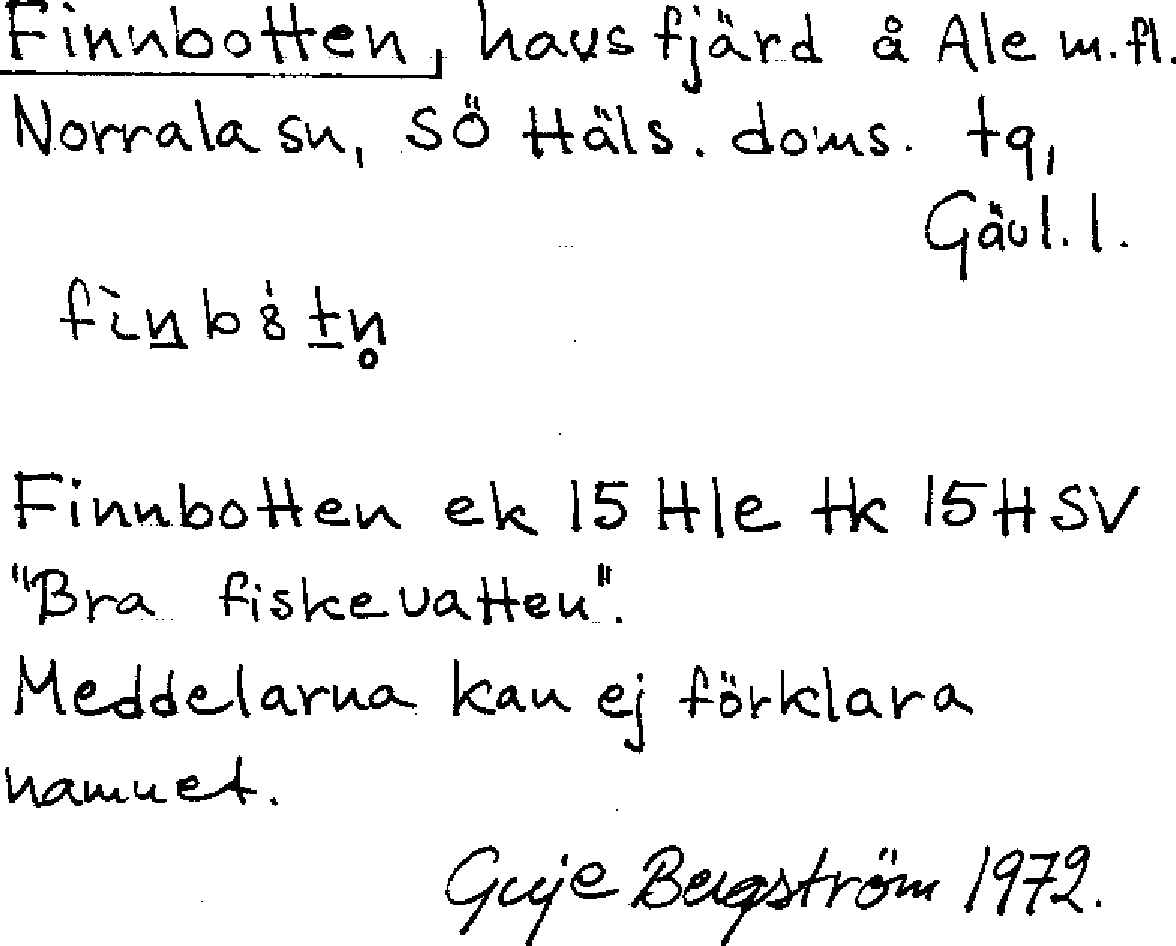 Finnbotten, havsfjärd å Ale m.fl.
Norrala sn, SÖ Häls. doms. tq,
Gävl. l.
Finnbotten ek 15 H1e tk 15H SV
"Bra fiskevatten".
Meddelarna kan ej förklara
namnet.
Guje Bergström 1972.